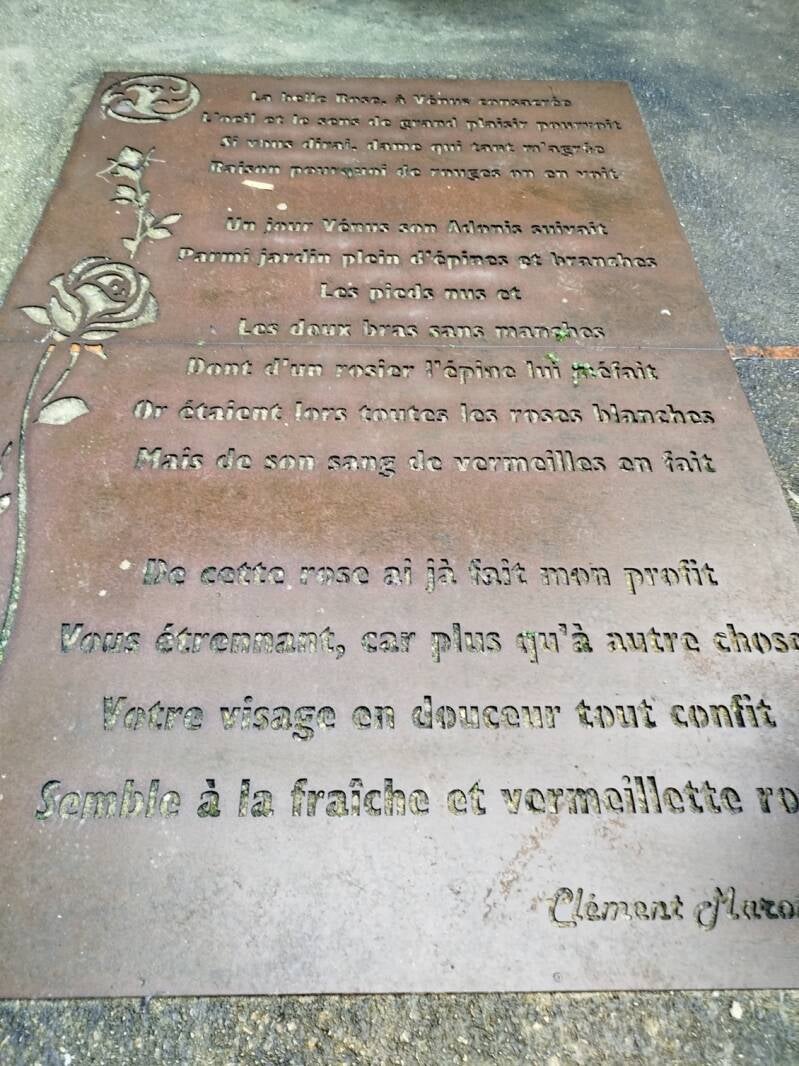 La belle Rose, à Vénus consacrée
L'oeil et le sens de grand plaisir pourvoit
Si vous dirai, dame qui tant m'agrée
Raison pourquoi de rouges on en voit
Un jour Vénus son Adonis suivait
Parmi jardin plein d'épines et branches
Les pieds nus et
Les deux bras sans manches
Dont d'un rosier l'épine lui méfait
Or étaient lors toutes les roses blanches
Mais de son sang de vermeilles en fait
De cette rose ai jà fait mon profit
Vous étrennant, car plus qu'à autre chose
Votre visage en douceur tout confit
Semble à la fraîche et vermeillette ro
Clément Marot